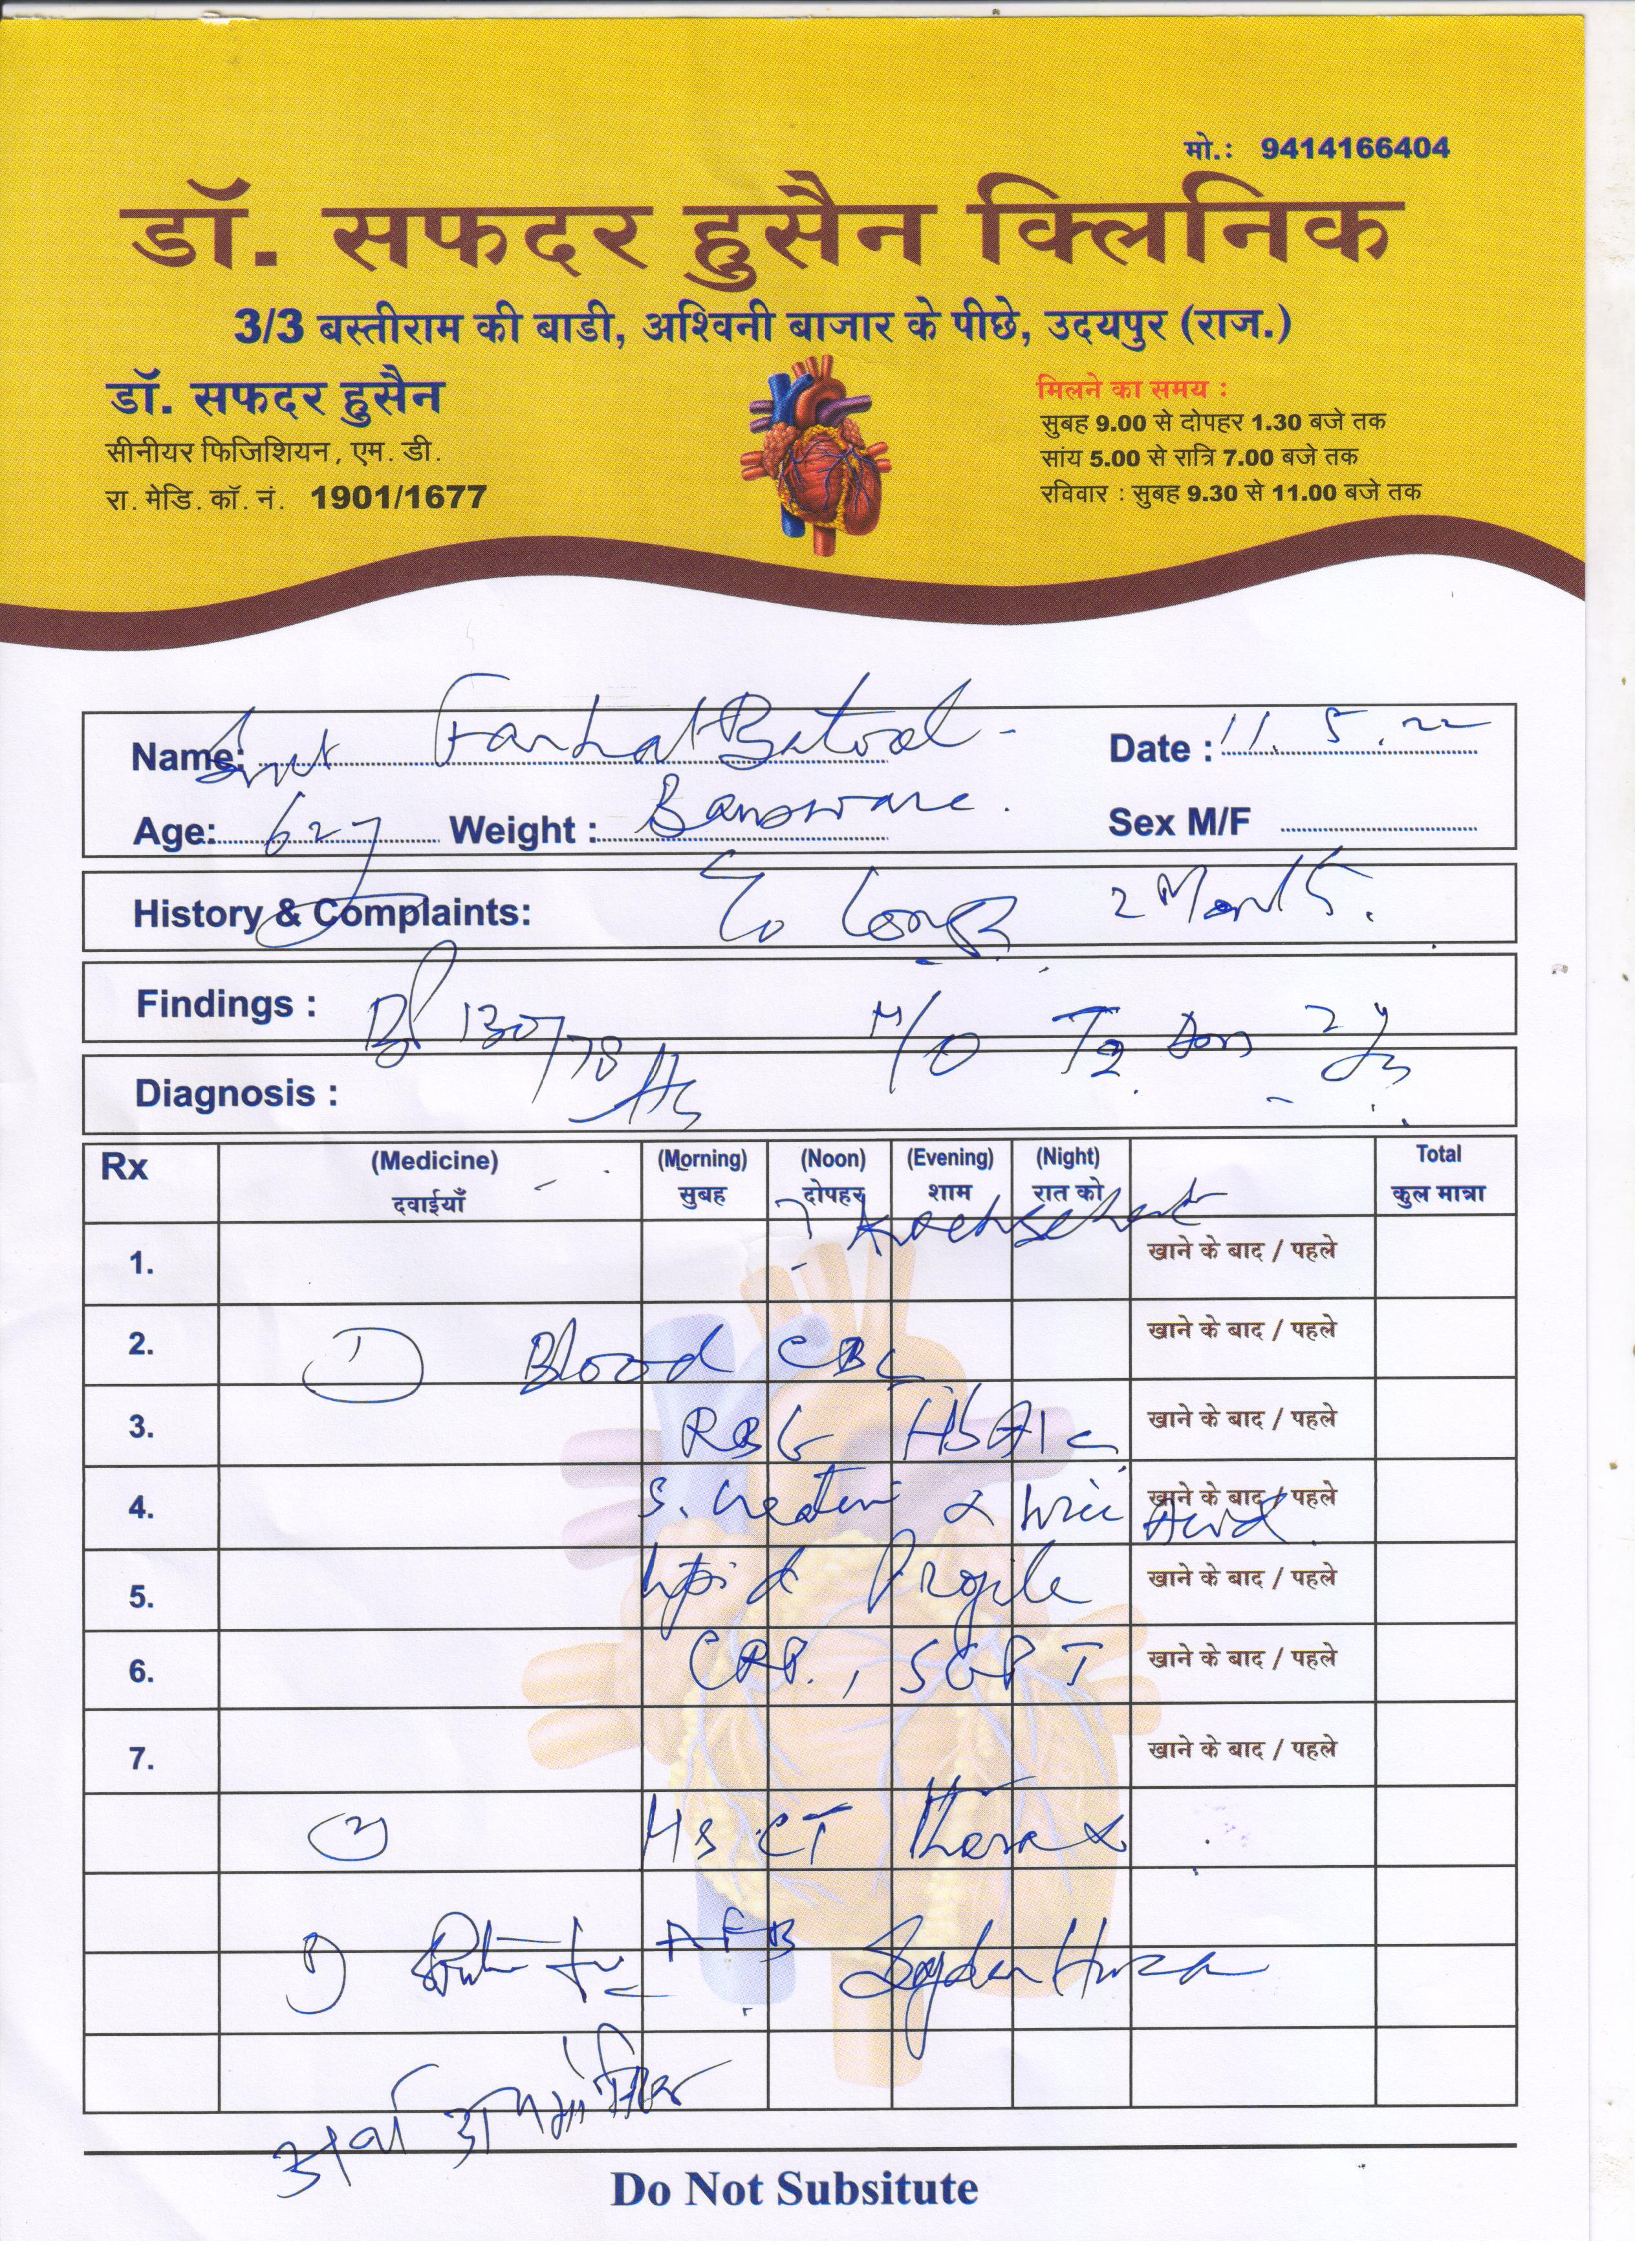 मो.: 9414166404
डॉ. सफदर हुसैन क्लिनिक
3/3 बस्तीराम की बाडी, अश्विनी बाजार के पीछे, उदयपुर (राज.)
डॉ. सफदर हुसैन
सीनीयर फिजिशियन, एम. डी.
रा. मेडि. कॉ. नं. 1901/1677
मिलने का समय :
सुबह 9.00 से दोपहर 1.30 बजे तक
सांय 5.00 से रात्रि 7.00 बजे तक
रविवार : सुबह 9.30 से 11.00 बजे तक
Name: Smt Farhat Batool - Date : 11. 5. 22
Age: 62y Weight : Banswara. Sex M/F
History & Complaints: C/o 2 Months.
Findings : BP 130/78 H/o T2 Dm 2 y
Diagnosis :
Rx (Medicine) (Morning) (Noon) (Evening) (Night) Total
दवाईयाँ सुबह दोपहर शाम रात को कुल मात्रा
? Koch's chest
1. खाने के बाद / पहले
2. 1 Blood CBC खाने के बाद / पहले
3. RBS HbA1c खाने के बाद / पहले
4. S. Creatini & Uric Acid खाने के बाद / पहले
5. Lipid Profile खाने के बाद / पहले
6. CRP., SGPT खाने के बाद / पहले
7. खाने के बाद / पहले
2 CT Thorax
AFB
Do Not Subsitute